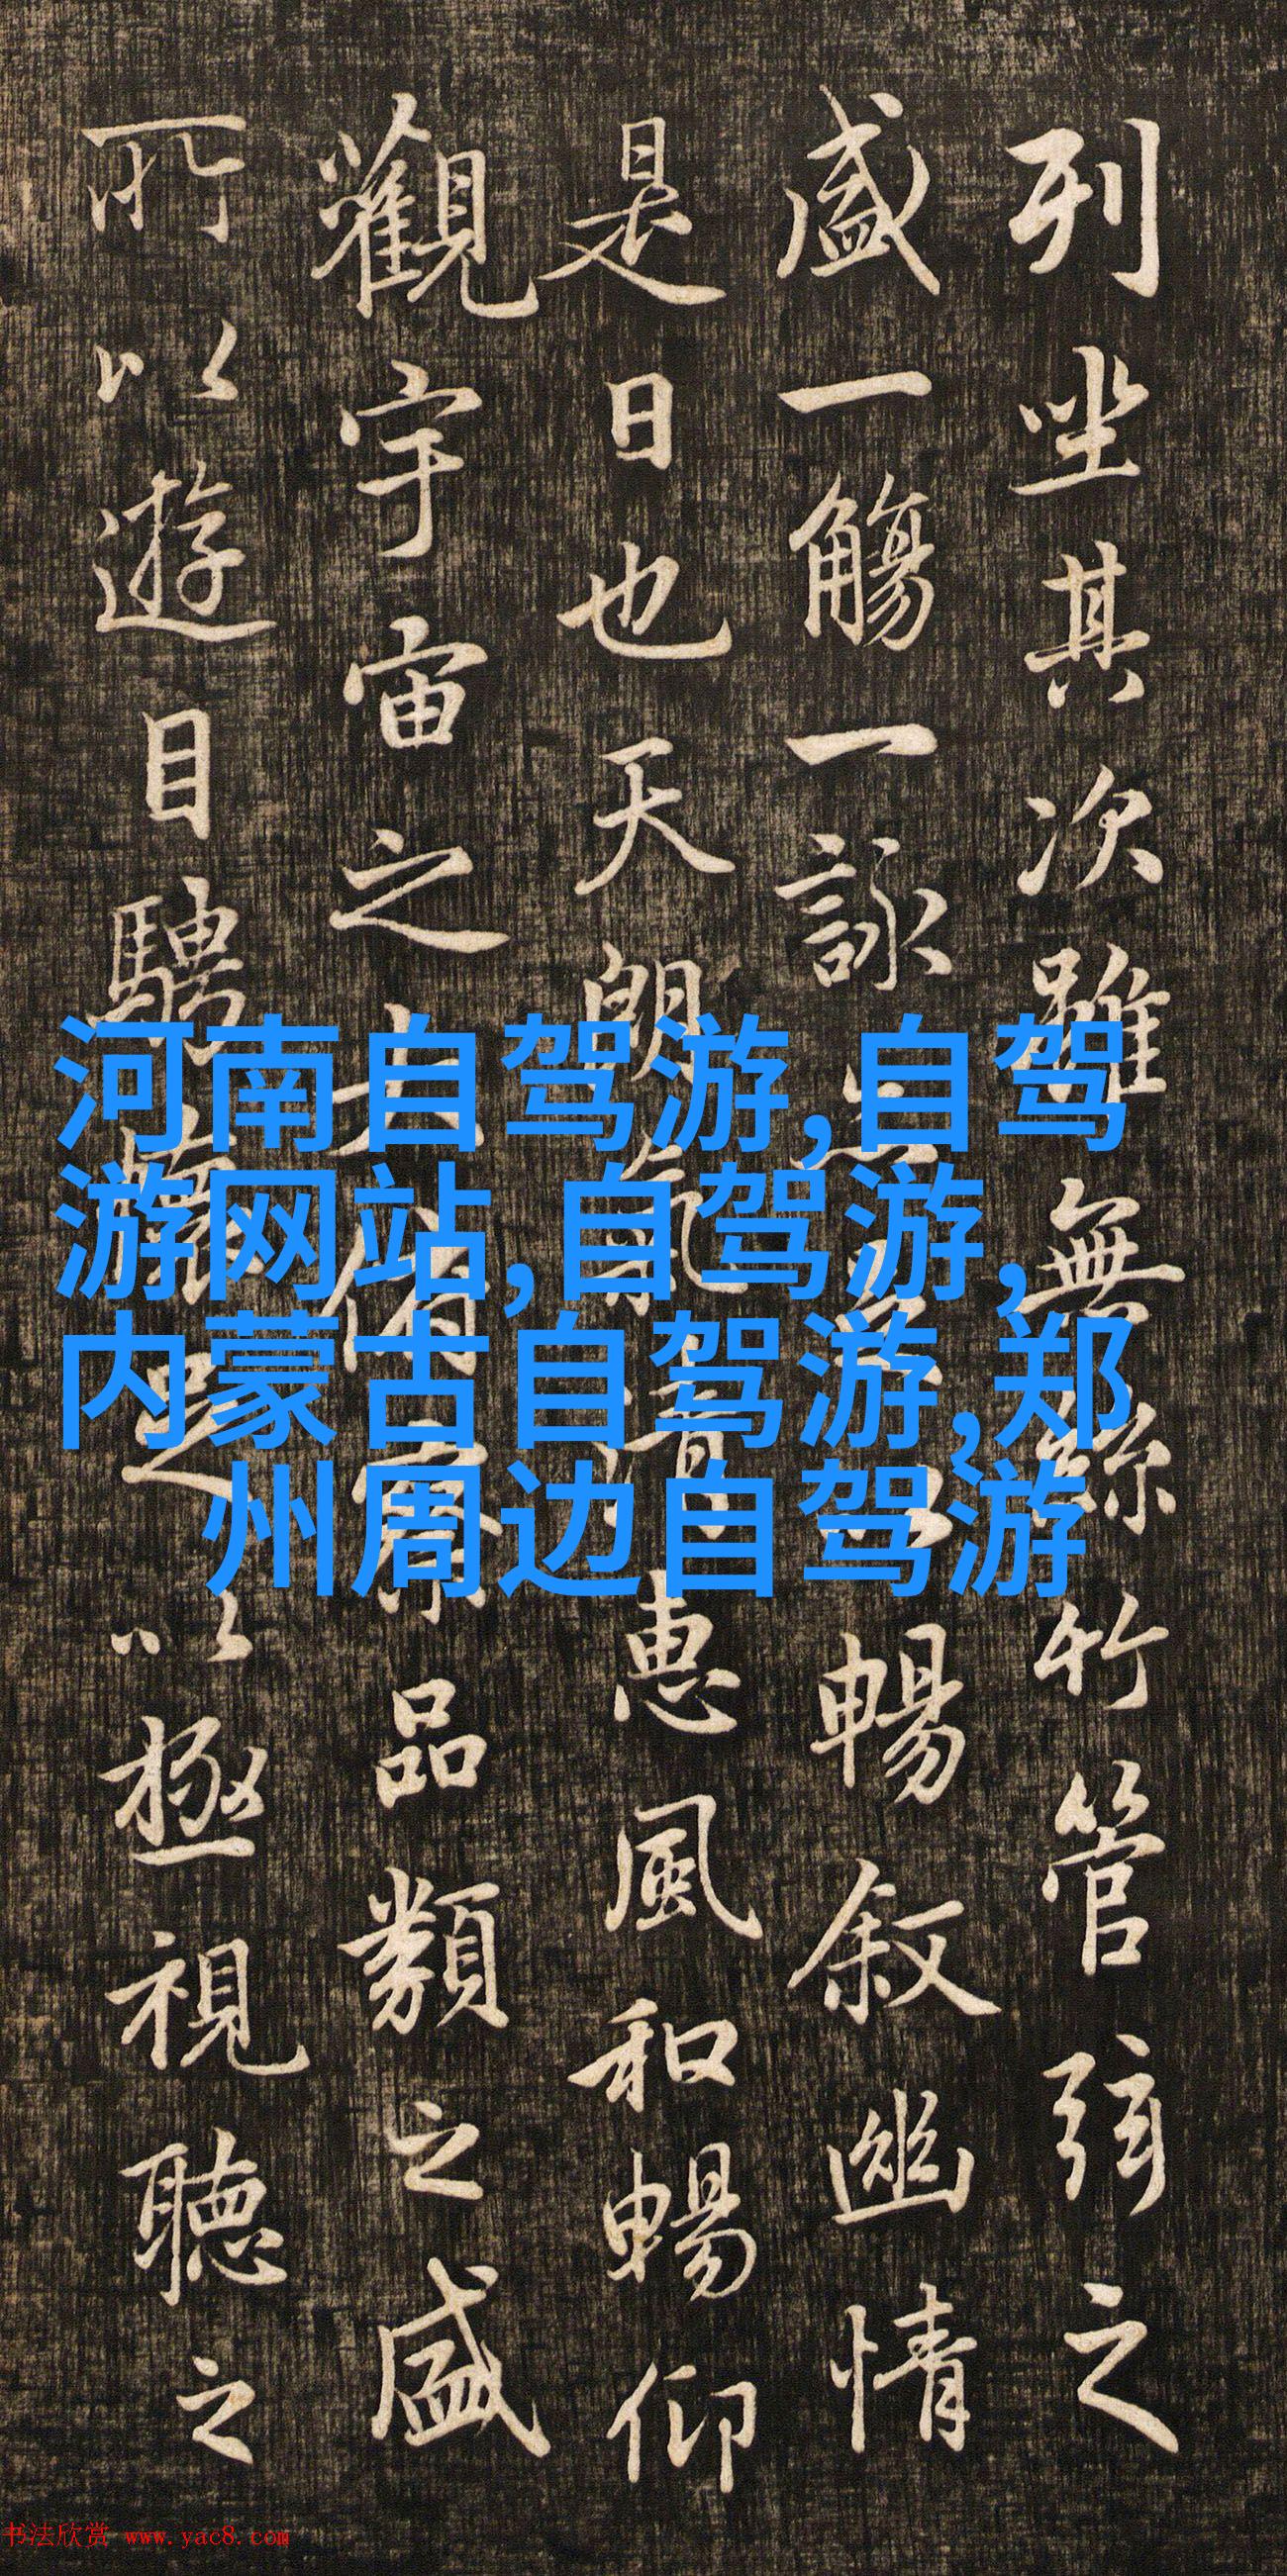 列坐其次雖無絲竹管弦之
盛一觴一詠亦足以暢叙幽情
是日也天朗氣清惠風和暢仰
觀宇宙之大俯察品類之盛
所以遊目騁懷足以極視聽之
河南自驾游,自驾
游网站,自驾游,
内蒙古自驾游,郑
州周边自驾游
书法欣赏 www.yac8.com